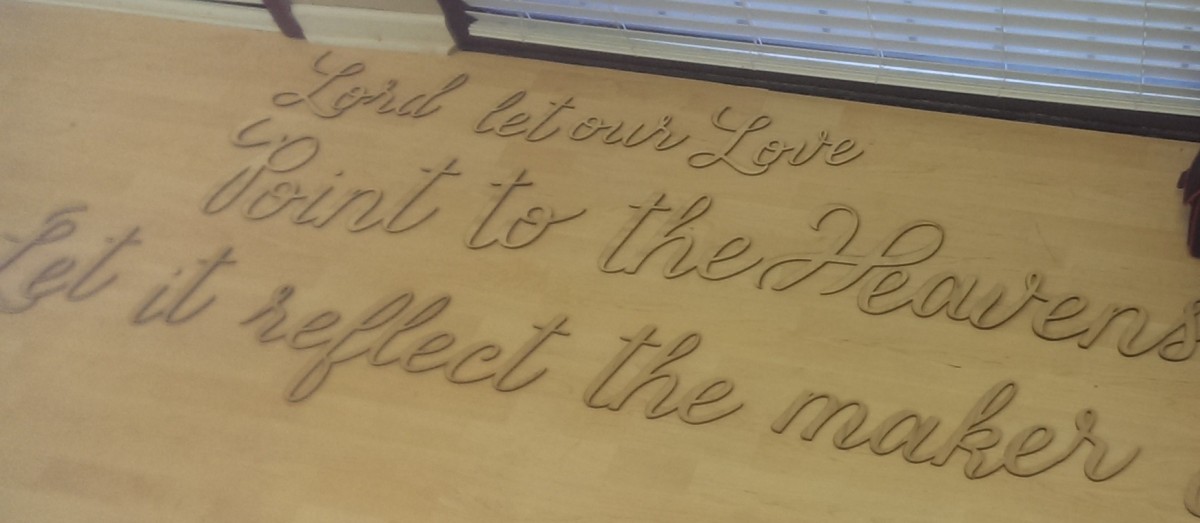 Lord let our Love
Point to the Heavens
Let it reflect the maker